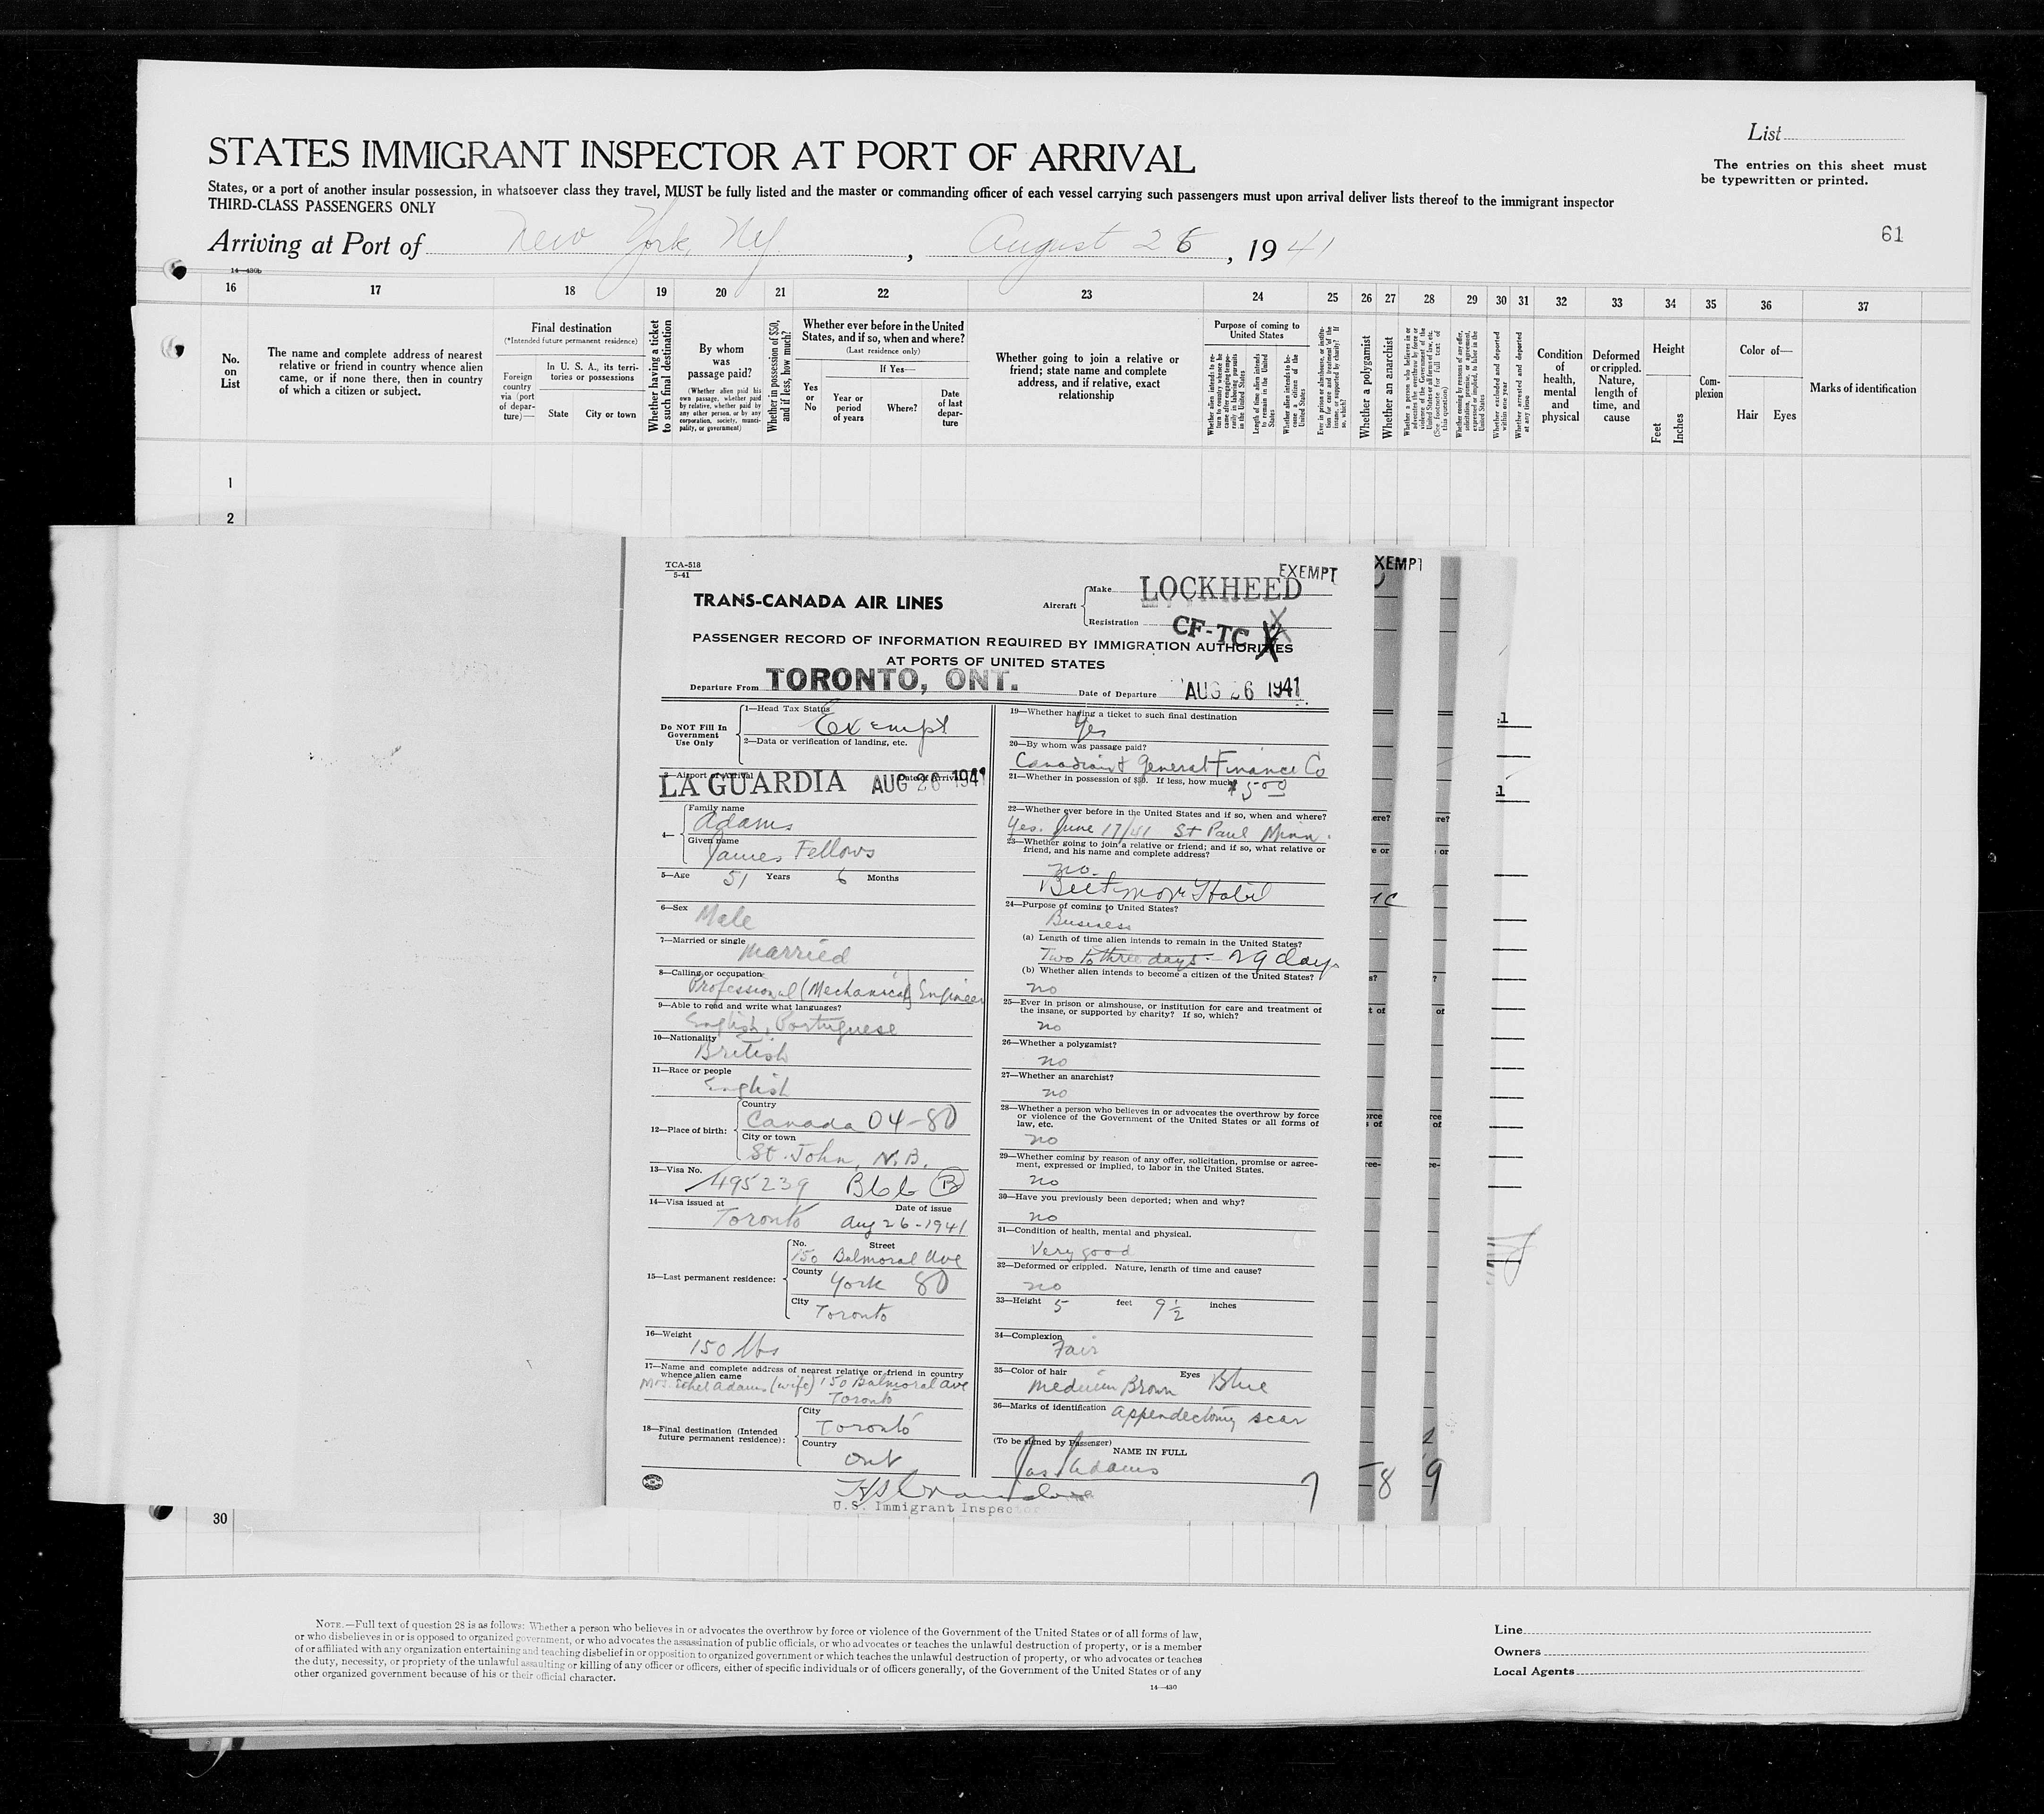 List
STATES IMMIGRANT INSPECTOR AT PORT OF ARRIVAL
The entries on this sheet must
be typewritten or printed.
States, or a port of another insular possession, in whatsoever class they travel, MUST be fully listed and the master or commanding officer of each vessel carrying such passengers must upon arrival deliver lists thereof to the immigrant inspector
THIRD-CLASS PASSENGERS ONLY
61
Arriving at Port of New York, NY, August 26, 1941
14—430b
16 17 18 19 20 21 22 23 24 25 26 27 28 29 30 31 32 33 34 35 36 37
No.
on
List
The name and complete address of nearest
relative or friend in country whence alien
came, or if none there, then in country
of which a citizen or subject.
Final destination
(*Intended future permanent residence)
Foreign
country
via (port
of depar-
ture)—
In U. S. A., its terri-
tories or possessions
State City or town
Whether having a ticket
to such final destination
By whom
was
passage paid?
(Whether alien paid his
own passage, whether paid
by relative, whether paid by
any other person, or by any
corporation, society, munici-
pality, or government)
Whether in possession of $50,
and if less, how much?
Whether ever before in the United
States, and if so, when and where?
(Last residence only)
If Yes—
Yes
or
No
Year or
period
of years
Where?
Date
of last
depar-
ture
Whether going to join a relative or
friend; state name and complete
address, and if relative, exact
relationship
Purpose of coming to
United States
Whether alien intends to re-
turn to country whence he
came after engaging tempo-
rarily in laboring pursuits
in the United States
Length of time alien intends
to remain in the United
States
Whether alien intends to be-
come a citizen of the
United States
Whether a polygamist
Whether an anarchist
Whether excluded and deported
within one year
Whether arrested and deported
at any time
Condition
of
health,
mental
and
physical
Deformed
or crippled.
Nature,
length of
time, and
cause
Height
Feet
Inches
Com-
plexion
Color of—
Hair Eyes
Marks of identification
1
2
TCA-518
5-41
TRANS-CANADA AIR LINES
Aircraft
Make LOCKHEED
EXEMPT
XEMPT
Registration CF-TC X
PASSENGER RECORD OF INFORMATION REQUIRED BY IMMIGRATION AUTHORITIES
AT PORTS OF UNITED STATES
Departure From TORONTO, ONT. Date of Departure AUG 26 1941
Do NOT Fill In
Government
Use Only
1—Head Tax Status
Exempt
2—Data or verification of landing, etc.
3—Airport of Arrival Date of Arrival
LA GUARDIA AUG 26 1941
4—
Family name
Adams
Given name
James Fellows
5—Age 51 Years 6 Months
6—Sex
Male
7—Married or single
Married
8—Calling or occupation
Professional (Mechanical) Engineer
9—Able to read and write what languages?
English, Portuguese
10—Nationality
British
11—Race or people
English
12—Place of birth:
Country
Canada 04-80
City or town
St. John, N.B.
13—Visa No.
495239 B66 B
14—Visa issued at Date of issue
Toronto Aug 26-1941
15—Last permanent residence:
No. Street
150 Balmoral Ave
County
York 80
City
Toronto
16—Weight
150 lbs
17—Name and complete address of nearest relative or friend in country
whence alien came
Mrs. Ethel Adams (wife) 150 Balmoral Ave
Toronto
18—Final destination (Intended
future permanent residence):
City
Toronto
Country
Ont
U.S. Immigrant Inspector
19—Whether having a ticket to such final destination
Yes
20—By whom was passage paid?
Canadian & General Finance Co
21—Whether in possession of $50. If less, how much?
$500
22—Whether ever before in the United States and if so, when and where?
Yes. June 17/41 St Paul Minn.
23—Whether going to join a relative or friend; and if so, what relative or
friend, and his name and complete address?
no.
Biltmore Hotel
24—Purpose of coming to United States?
Business
(a) Length of time alien intends to remain in the United States?
Two to three days - 29 days
(b) Whether alien intends to become a citizen of the United States?
no
25—Ever in prison or almshouse, or institution for care and treatment of
the insane, or supported by charity? If so, which?
no
26—Whether a polygamist?
no
27—Whether an anarchist?
no
28—Whether a person who believes in or advocates the overthrow by force
or violence of the Government of the United States or all forms of
law, etc.
no
29—Whether coming by reason of any offer, solicitation, promise or agree-
ment, expressed or implied, to labor in the United States.
no
30—Have you previously been deported; when and why?
no
31—Condition of health, mental and physical.
Very good
32—Deformed or crippled. Nature, length of time and cause?
no
33—Height 5 feet 9 1/2 inches
34—Complexion
Fair
35—Color of hair Eyes
Medium Brown Blue
36—Marks of identification Appendectomy scar
(To be signed by Passenger)
NAME IN FULL
Jas F Adams
7 8 9
30
NOTE.—Full text of question 28 is as follows: Whether a person who believes in or advocates the overthrow by force or violence of the Government of the United States or of all forms of law,
or who disbelieves in or is opposed to organized government, or who advocates the assassination of public officials, or who advocates or teaches the unlawful destruction of property, or is a member
of or affiliated with any organization entertaining and teaching disbelief in or opposition to organized government or which teaches the unlawful destruction of property, or who advocates or teaches
the duty, necessity, or propriety of the unlawful assaulting or killing of any officer or officers, either of specific individuals or of officers generally, of the Government of the United States or of any
other organized government because of his or their official character.
14—430
Line
Owners
Local Agents